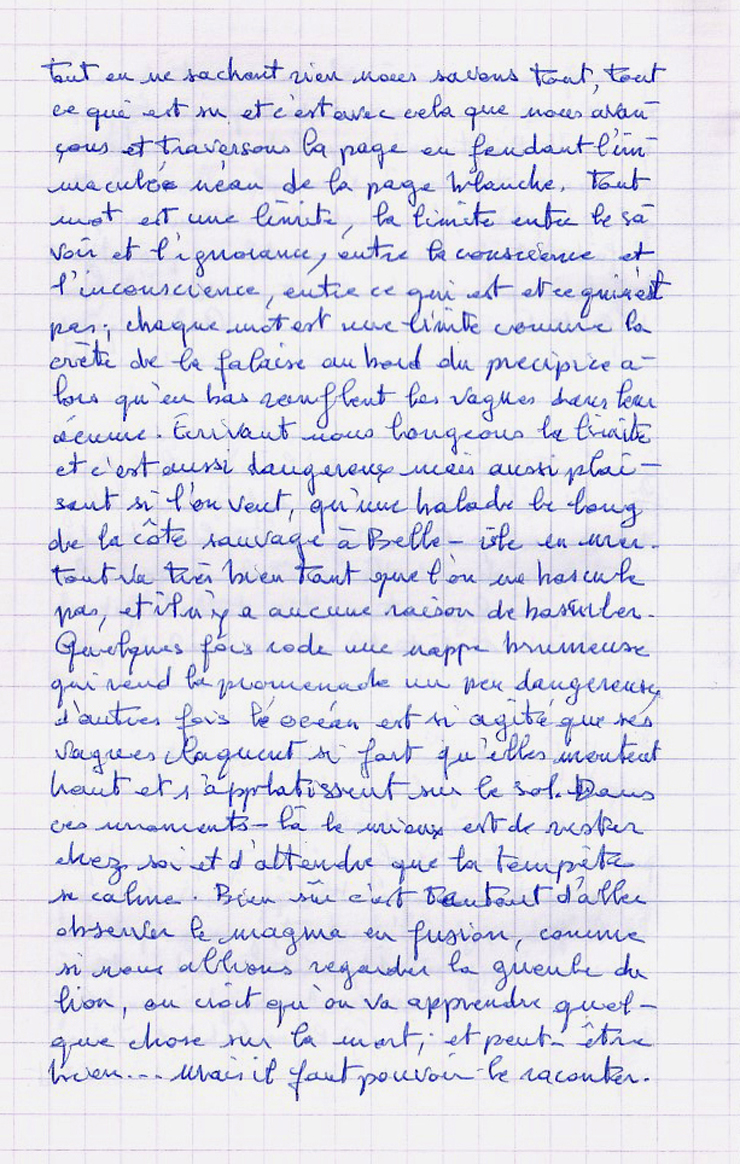 tout en ne sachant rien nous savons tout, tout
ce qui est su et c'est avec cela que nous avan-
çons et traversons la page en fendant l'im-
maculée néan de la page blanche. Tout
mot est une limite, la limite entre le sa-
voir et l'ignorance, entre la conscience et
l'inconscience, entre ce qui est et ce qui n'est
pas; chaque mot est une limite comme la
crête de la falaise au bord du précipice a-
lors qu'en bas ronflent les vagues dans leur
écume. Écrivant nous bougeons la limite
et c'est aussi dangereux mais aussi plai-
sant si l'on veut, qu'une balade le long
de la côte sauvage à Belle-isle en mer.
tout va très bien tant que l'on ne bascule
pas, et il n'y a aucune raison de basculer.
Quelques fois rode une nappe brumeuse
qui rend la promenade un peu dangereuse,
d'autres fois l'océan est si agité que ses
vagues claquent si fort qu'elles montent
haut et s'applatissent sur le sol. Dans
ces moments-là le mieux est de rester
chez soi et d'attendre que la tempête
se calme. Bien sûr c'est tentant d'aller
observer le magma en fusion, comme
si nous allions regarder la gueule du
lion, on croit qu'on va apprendre quel-
que chose sur la mort; et peut-être
bien... Mais il faut pouvoir le raconter.